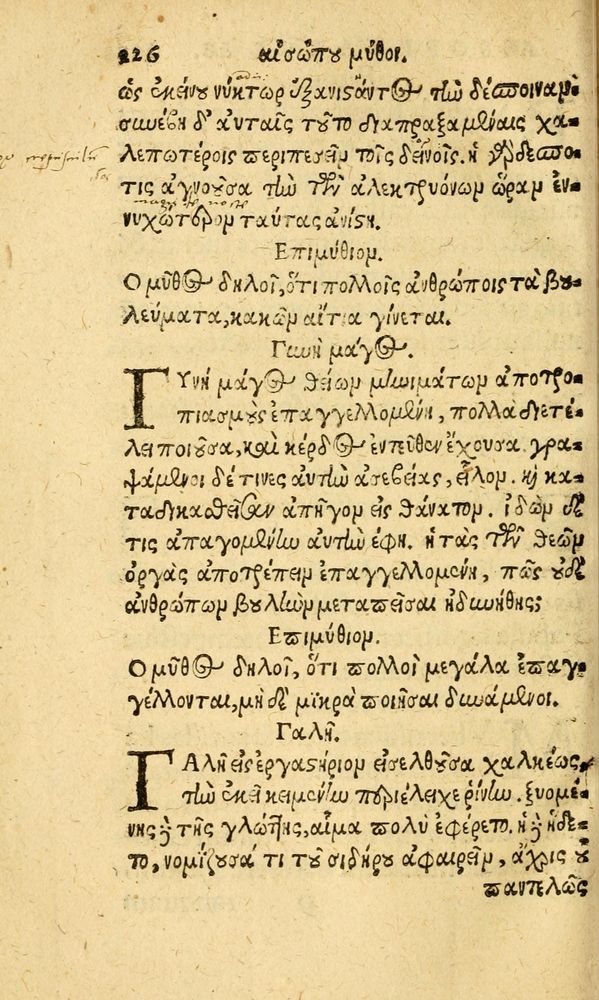 226 αἰσώπου μῦθοι.
ὡς ἐκείνου νύκτωρ ἐξανιστάντος τὴν δέσποιναν·
συνέβη δ' αὐταῖς τοῦτο διαπραξαμέναις χα-
λεπωτέροις περιπεσεῖν τοῖς δεινοῖς. ἡ γὰρ δεσπό-
τις ἀγνοοῦσα τὴν τῶν ἀλεκτρυόνων ὥραν ἐν-
νυχώτερον ταύτας ἀνίστη.
Επιμύθιον.
Ο μῦθος δηλοῖ, ὅτι πολλοῖς ἀνθρώποις τὰ βου-
λεύματα, κακῶν αἴτια γίνεται.
Γυνὴ μάγος.
ΓΥνὴ μάγος θείων μηνιμάτων ἀποτρο-
πιασμοὺς ἐπαγγελλομένη, πολλὰ διετέ-
λει ποιοῦσα, καὶ κέρδος ἐντεῦθεν ἔχουσα. γρα-
ψάμενοι δέ τινες αὐτὴν ἀσεβείας, εἷλον. καὶ κα-
ταδικασθεῖσαν ἀπῆγον εἰς θάνατον. ἰδὼν δέ
τις ἀπαγομένην αὐτὴν ἔφη. ἡ τὰς τῶν θεῶν
ὀργὰς ἀποτρέπειν ἐπαγγελλομένη, πῶς οὐδὲ
ἀνθρώπων βουλὴν μεταπεῖσαι ἠδυνήθης;
Επιμύθιον.
Ο μῦθος δηλοῖ, ὅτι πολλοὶ μεγάλα ἐπαγ-
γέλλονται, μηδὲ μικρὰ ποιῆσαι δυνάμενοι.
Γαλῆ.
ΓΑλῆ εἰς ἐργαστήριον εἰσελθοῦσα χαλκέως,
τὴν ἐκεῖ κειμένην περιέλειχε ῥίνην. ξυομέ-
νης δὲ τῆς γλώττης, αἷμα πολὺ ἐφέρετο. ἡ δὲ ἥδε-
το, νομίζουσά τι τοῦ σιδήρου ἀφαιρεῖν, ἄχρις οὗ
παντελῶς